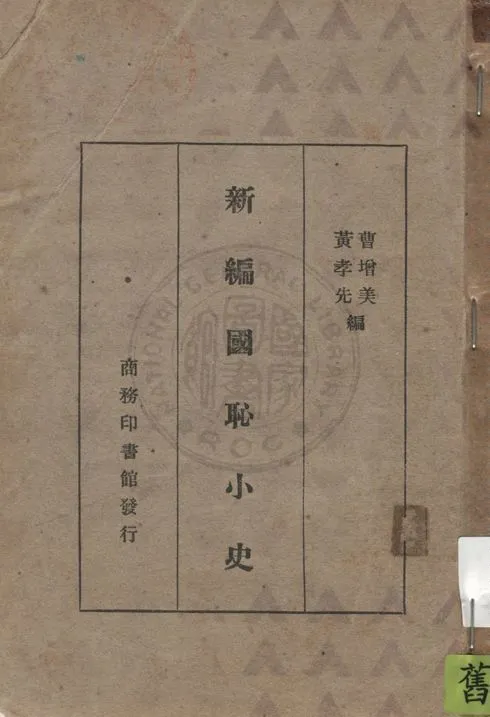 曹增美
黃孝先編
新編國恥小史
商務印書館發行
NATIONAL CENTRAL LIBRARY
舊